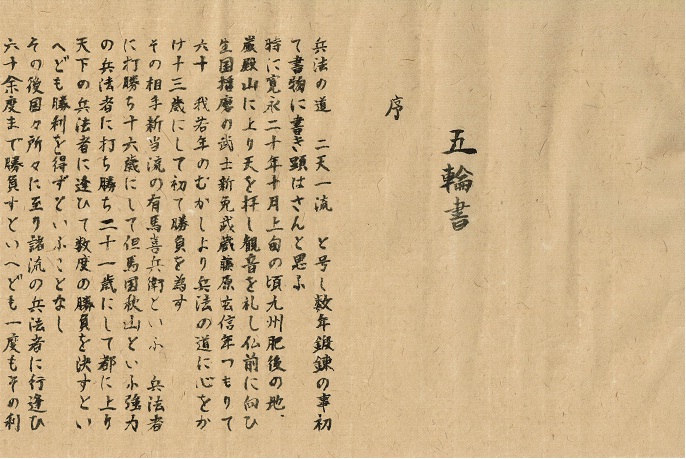 五輪書
序
兵法の道　二天一流　と号し数年鍛錬の事初
て書物に書き顕はさんと思ふ
時に寛永二十年十月上旬の頃九州肥後の地、
巌殿山に上り天を拝し観音を礼し仏前に向ひ
生国播磨の武士新免武蔵藤原玄信年つもりて
六十　我若年のむかしより兵法の道に心をか
け十三歳にして初て勝負を為す
その相手新当流の有馬喜兵衛といふ　兵法者
に打勝ち十六歳にして但馬国秋山といふ強力
の兵法者に打ち勝ち二十一歳にして都に上り
天下の兵法者に逢ひて数度の勝負を決すとい
へども勝利を得ずといふことなし
その後国々所々に至り諸流の兵法者に行逢ひ
六十余度まで勝負すといへども一度もその利